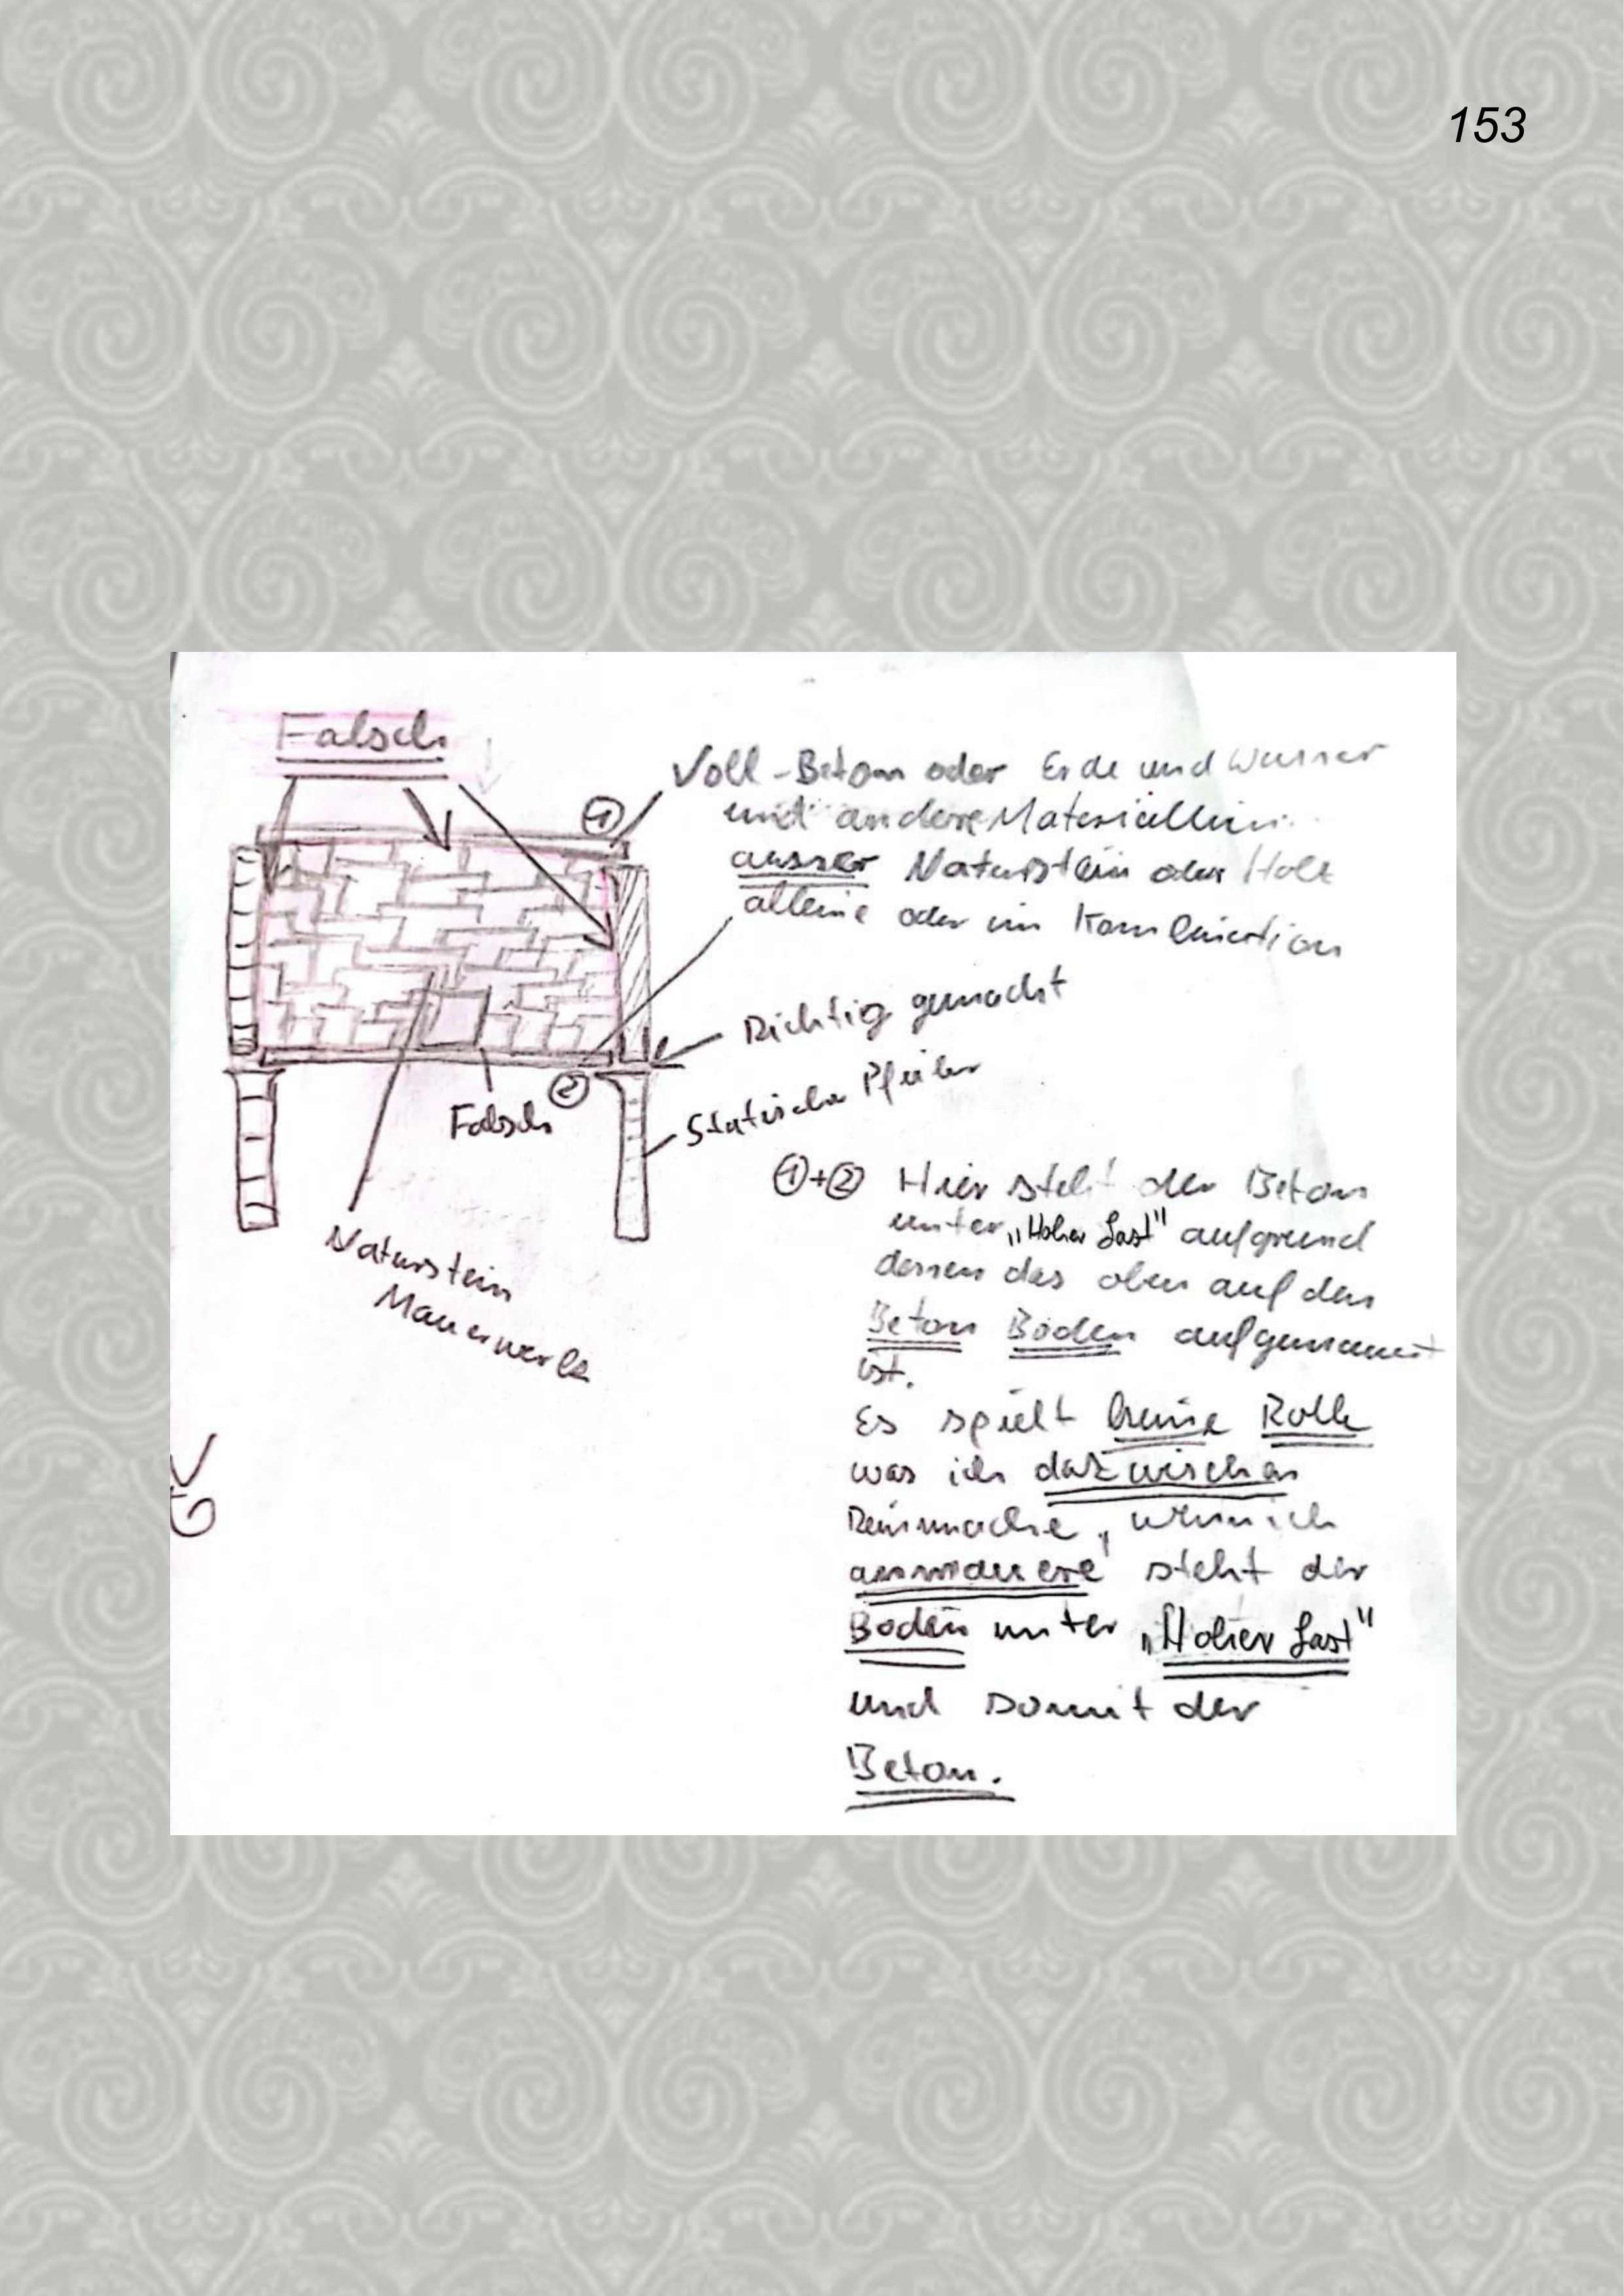 153
Falsch
①
Voll-Beton oder Erde und Wasser
und andere Materiallien
ausser Naturstein oder Holz
alleine oder in Kombination
Richtig gemacht
②
Falsch
Statische Pfeiler
Naturstein
Mauerwerk
①+② Hier steht der Beton
unter „Hoher Last" aufgrund
dessen das oben auf den
Beton Boden aufgemauert
ist.
Es spielt keine Rolle
was ich dazwischen
Reinmache, wenn ich
anmauere steht der
Boden unter „Hoher Last"
und somit der
Beton.